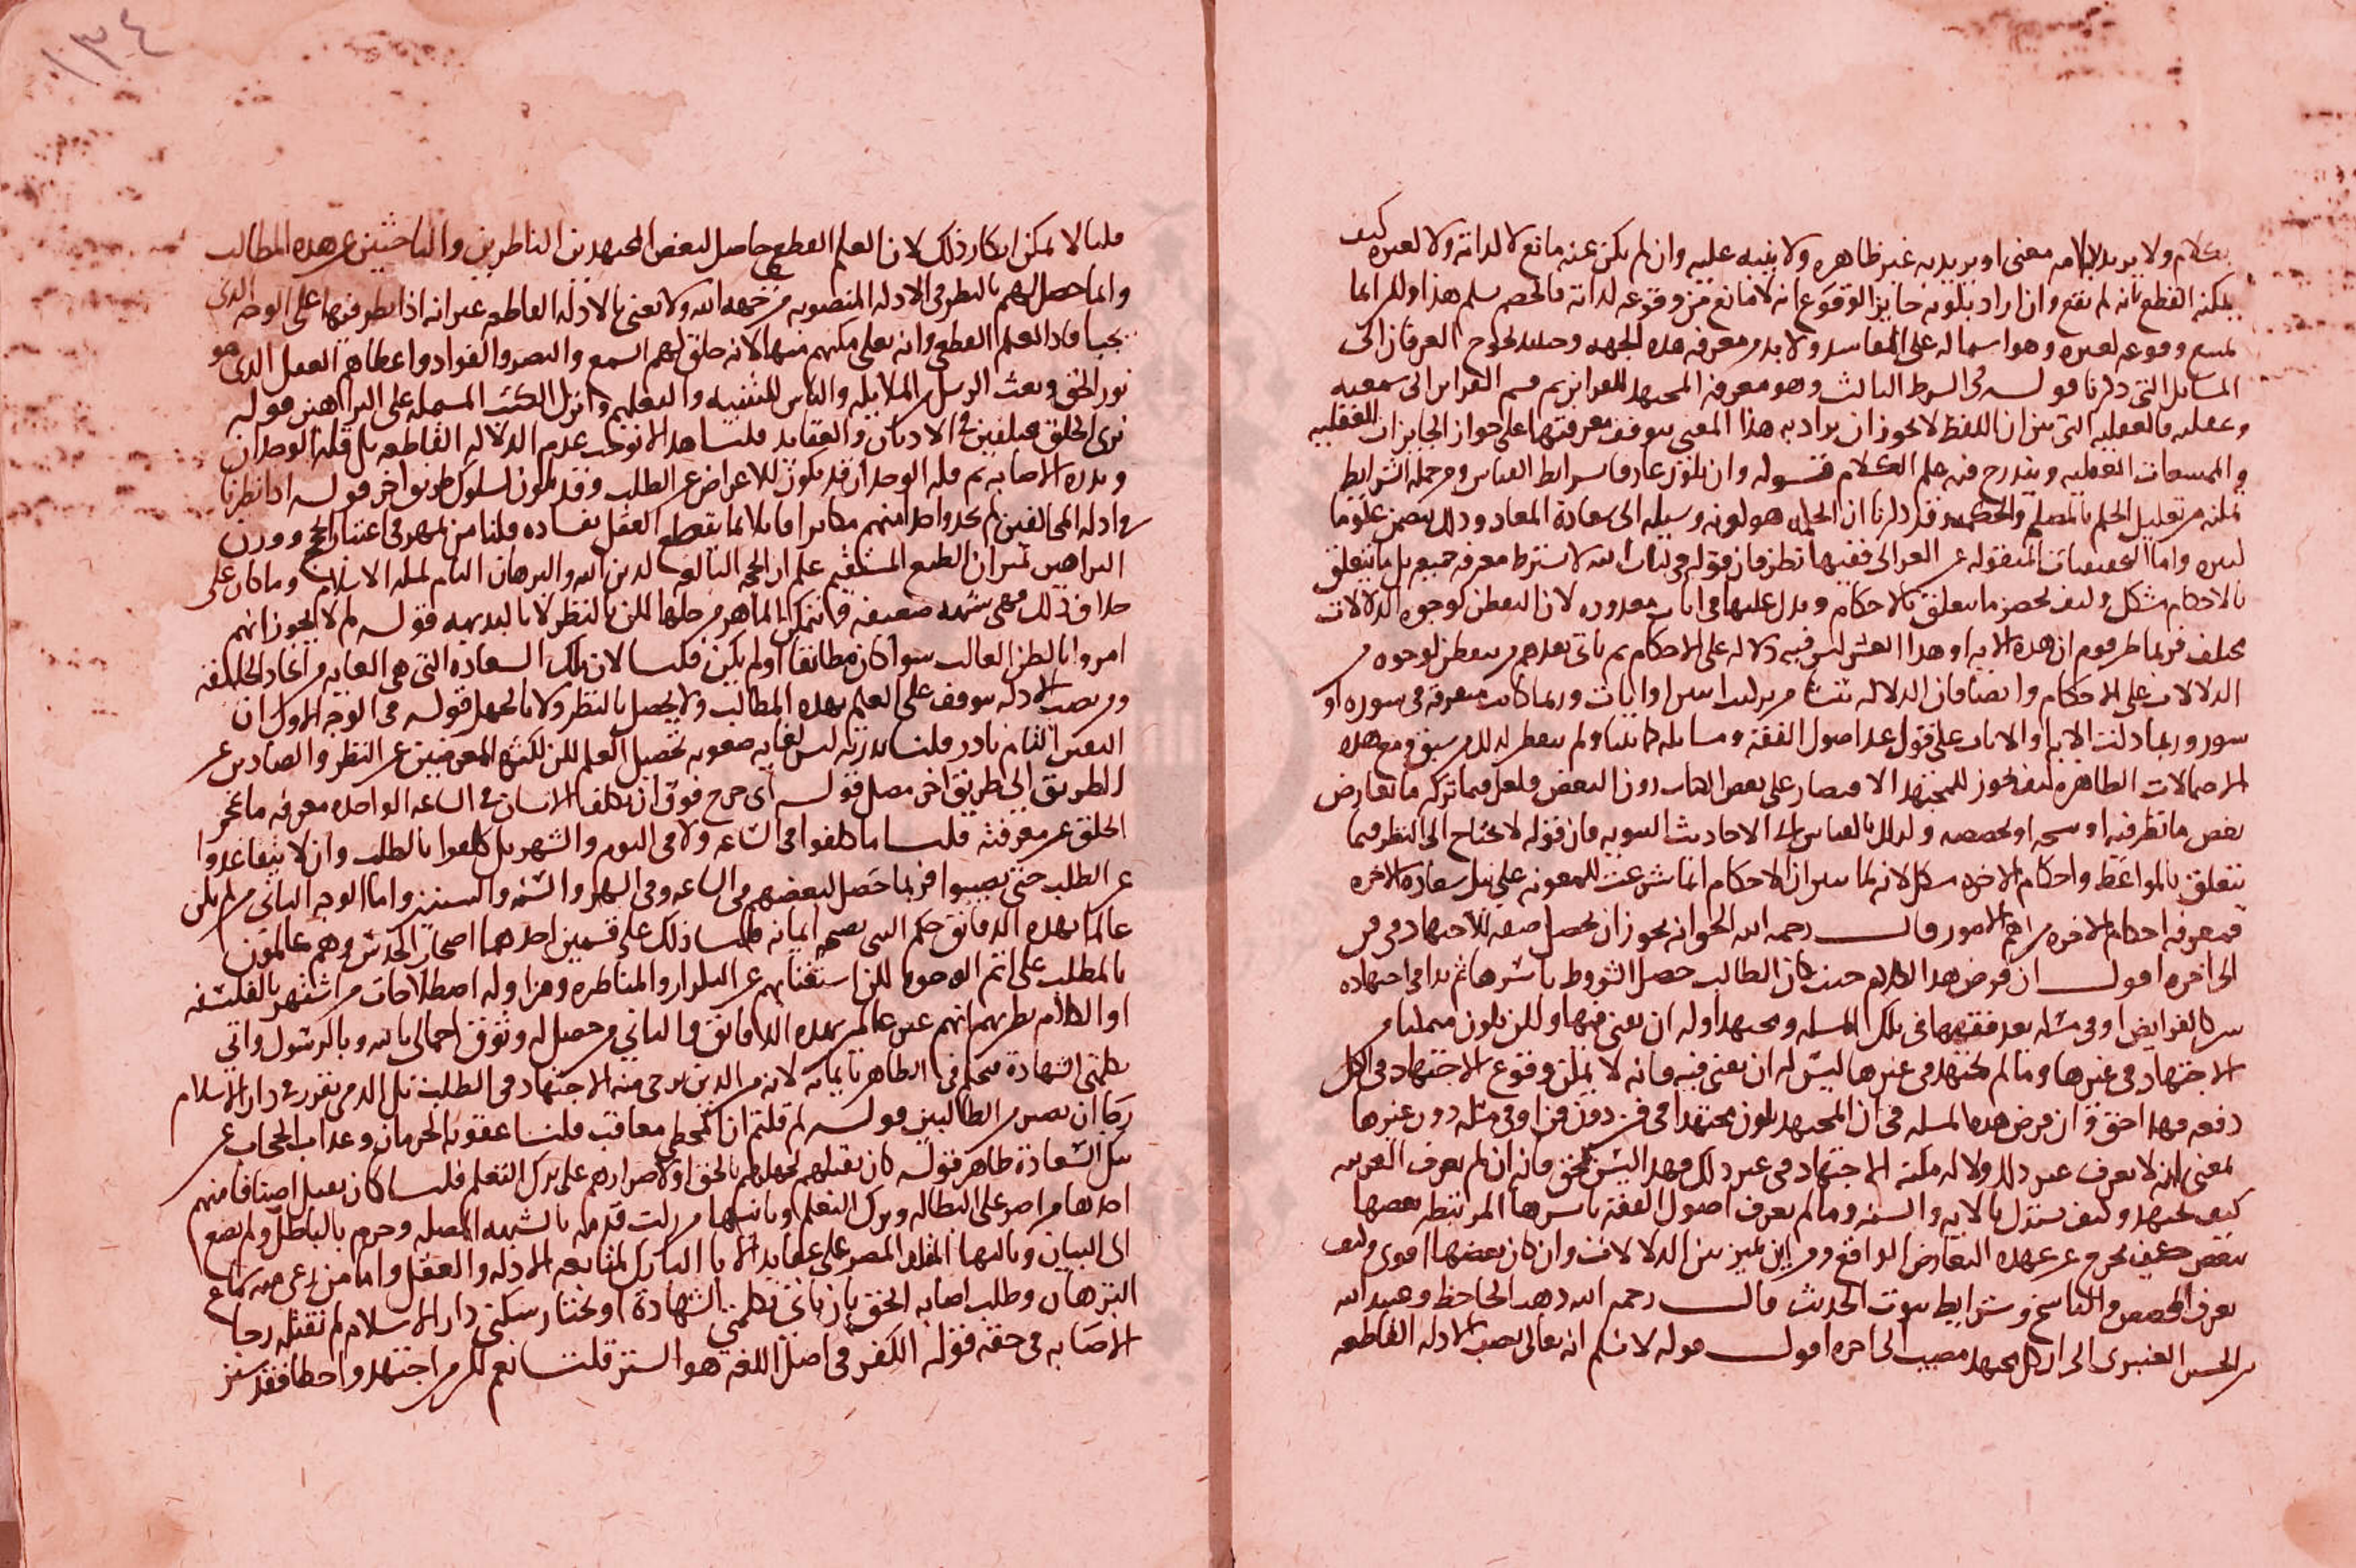 بكلام ولا يريد بكلامه معنى او يريد به غير ظاهره ولا ينبه عليه وان لم يكن عنه مانع لا لذاته ولا لغيره كيف
يمكنه القطع بانه لم يقع وان اراد بكونه جايز الوقوع انه لا مانع من وقوعه لذاته فالخصم يسلم هذا ولكن انما
يمتنع وقوعه لغيره وهو اشتماله على المفاسد ولا بد من معرفة هذه الجهة وحينئذ يحوج العرفان الى
المسايل التي ذكرنا قوله في الشرط الثالث وهو معرفة المجتهد للقراين ثم قسم القراين الى سمعيه
وعقليه فالعقليه التي تبين ان اللفظ لا يجوز ان يراد به هذا المعنى يتوقف معرفتها على جواز الجايزات العقليه
والممتنعات العقليه ويندرج فيه علم الكلام قوله وان يكون عارفا بشرايط القياس ومن جملة الشرايط
تمكنه من تعليل الحكم بالمصلح والحكمه وقد ذكرنا ان الحكمه هو كونه وسيله الى سعادة المعاد وذلك يتضمن علوما
كثيره واما التخفيفات المنقوله عن الغزالي ففيها نظر فان قوله في كتاب الله لا يشترط معرفة جميعه بل ما يتعلق
بالاحكام مشكل وكيف يحصر ما يتعلق بالاحكام ويدل عليها في ايات معدوده لان التفطن لوجوه الدلالات
يختلف فربما ظن قوم ان هذه الايه او هذا العشر ليس فيه دلاله على الاحكام ثم ياتي بعدهم من يتفطن لوجوه من
الدلالات على الاحكام وايضا فان الدلاله تنشا من تركيب ايتين او ايات وربما كانت متفرقه في سوره او
سور وربما دلت الايه او الايات على قول عند اصول الفقه ومسايله كما بينا ولم يتفطر لذلك من سبق ومع هذه
الاحتمالات الظاهره كيف يجوز للمجتهد الاقتصار على بعض الكتاب دون البعض فلعل فيما تركه ما يعارض
بعض ما نظر فيه او نسخه او يخصصه وكذلك بالقياس الى الاحاديث النبويه فان قوله لا يحتاج الى النظر فيما
يتعلق بالمواعظ واحكام الاخره مشكل لانه لما تبين ان الاحكام انما شرعت للمعونه على نيل سعادة الاخره
فمعرفة احكام الاخره من اهم الامور قال رحمه الله الحق انه يجوز ان يحصل صفه للاجتهاد في فن
الى اخره اقول ان فرض هذا الكلام حيث كان الطالب حصل الشروط باسرها ثم بدا في اجتهاده
من كالفرايض او في مسله بعد فقهها في تلك المسله ويجتهد وله ان يفتي فيها ولكن يكون متمكنا من
الاجتهاد في غيرها وما لم يجتهد في غيرها ليس له ان يفتي فيه فانه لا يمكن وقوع الاجتهاد في الكل
دفعه فهذا حق وان فرض هذه المسله في ان المجتهد يكون مجتهدا في فن دون فن او في مسله دون غيرها
بمعنى انه لا يعرف غير ذلك ولا له مكنة الاجتهاد في غير ذلك فهذا ليس بحق فانه ان لم يعرف العربيه
كيف يجتهد وكيف يستدل بالايه والسنه وما لم يعرف اصول الفقه باسرها المرتبطه بعضها
ببعض كيف يخرج عن عهدة التعارض الواقع ومن اين يميز بين الدلالات وان كان بعضها اقوى وكيف
يعرف المخصص والناسخ وشرايط ثبوت الحديث قال رحمه الله ذهب الجاحظ وعبيد الله
بن الحسن العنبري الى ان كل مجتهد مصيب الى اخره اقول قوله لا نسلم انه تعالى نصب الادله القاطعه
١٣٤
قلنا لا يمكن انكار ذلك لان العلم القطعي حاصل لبعض المجتهدين الناظرين والباحثين عن هذه المطالب
وانما حصل لهم بالنظر في الادله المنصوبه من جهة الله ولا نعني بالادله القاطعه غير انه اذا نظر فيها على الوجه الذي
يجب افاد العلم القطعي وانه تعالى مكنهم منها لانه خلق لهم السمع والبصر والفواد واعطاهم العقل الذي هو
نور الحق وبعث الرسل الملايكه والناس للتنبيه والتعليم وانزل الكتب المشتمله على البراهين قوله
نرى الخلق مختلفين في الاديان والعقايد قلنا هذا لا يوجب عدم الدلاله القاطعه بل قلة الوجدان
وندرة الاصابه ثم قلة الوجدان قد يكون للاعراض عن الطلب وقد يكون لسلوك طريق اخر قوله اذا نظرنا
في ادلة المخالفين لم نجد واحدا منهم مكابرا قايلا بما يقطع العقل بفساده قلنا من تمهر في اعتبار الحجج ووزن
البراهين بميزان الطبع المستقيم علم ان الحجه البالغه لدين الله والبرهان التام لملة الاسلام وما كان على
خلاف ذلك فهي شبهه ضعيفه فانتمكن الماهر من حلها لكن بالنظر لا بالبديهه قوله لم لا يجوز انهم
امروا بالظن الغالب سوا كان مطابقا اولم يكن قلنا لان تلك السعاده التي هي الغايه من ايجاد الخليقه
ومن نصب الادله يتوقف على العلم بهذه المطالب ولا يحصل بالنظر ولا بالجهل قوله في الوجه الاول ان
اليقين التام نادر قلنا ندرته ليس لغاية صعوبة تحصيل العلم لكن لكثرة المعرضين عن النظر والصادين عن
الطريق الى طريق اخر مضل قوله اى حرج فوق ان يكلف الانسان في الساعه الواحده معرفة ما عجز
الخلق عن معرفته قلنا ما كلفوا في الساعه ولا في اليوم والشهر بل كلفوا بالطلب وان لا يتقاعدوا
عن الطلب حتى يصيبوا فربما حصل لبعضهم في الساعه وفي الشهر والسنه والسنتين واما الوجه الثاني من لم يكن
عالما بهذه الدقايق حكم النبي بصحة ايمانه قلنا ذلك على قسمين احدهما اصحاب الحدس وهم عالمون
بالمطلب على اتم الوجوه لكن استغنايهم عن التكرار والمناظره ومزاولة اصطلاحات من اشتهر بالفلسفه
او الكلام يظن بهم انهم غير عالمين بهذه الدقايق والثاني من حصل له وثوق اجمالي بالله وبالرسول واتى
بكلمتى الشهادة فحكم في الظاهر بايمانه لانه من الدين يرجى منه الاجتهاد في الطلب بل الذمي يقرر في دار الاسلام
رجا ان يصير من الطالبين قوله لم قلتم ان المخطي معاقب قلنا عقوبة الحرمان وعذاب الحجاب عن
نيل السعادة ظاهر قوله كان يقتلهم لجهلهم بالحق او لاصرارهم على ترك التعلم قلنا كان يقتل اصنافا منهم
احدها من اصر على البطاله وترك التعلم وثانيها من زلت قدمه بالشبهه المضله وحرم بالباطل ولم يصغ
الى البيان وثالثها المقلد المصر على عقايد الابا التارك لمتابعة الادله والعقل واما من رعى منه سماع
البرهان وطلب اصابة الحق بان ياتى بكلمتي الشهادة او يختار سكنى دار الاسلام لم نقتله رجا
الاصابه في حقه قوله الكفر في اصل اللغه هو الستر قلنا نعم لكن من اجتهد واخطا فقد ستر